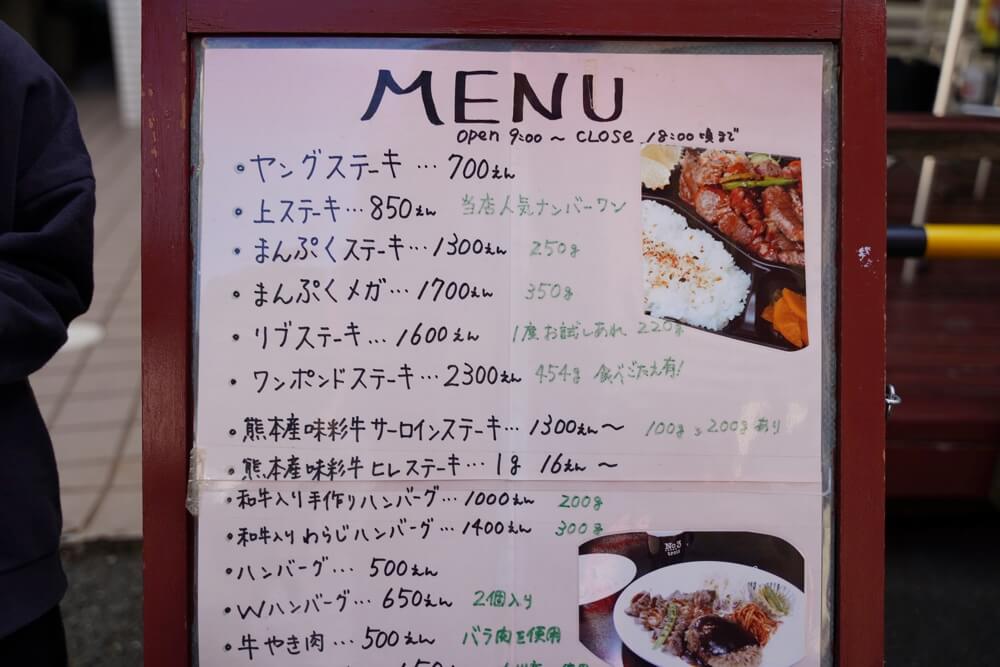 MENU
open 9:00 〜 CLOSE 18:00 頃まで
・ヤングステーキ … 700えん
・上ステーキ … 850えん 当店人気ナンバーワン
・まんぷくステーキ … 1300えん 250g
・まんぷくメガ … 1700えん 350g
・リブステーキ … 1600えん 1度お試しあれ 220g
・ワンポンドステーキ … 2300えん 454g 食べごたえ有!
・熊本産味彩牛サーロインステーキ … 1300えん〜 100g 200gあり
・熊本産味彩牛ヒレステーキ … 1g 16えん 〜
・和牛入り手作りハンバーグ … 1000えん 200g
・和牛入りわらじハンバーグ … 1400えん 300g
・ハンバーグ … 500えん
・Wハンバーグ … 650えん 2個入り
・牛やき肉 … 500えん バラ肉を使用
No.3